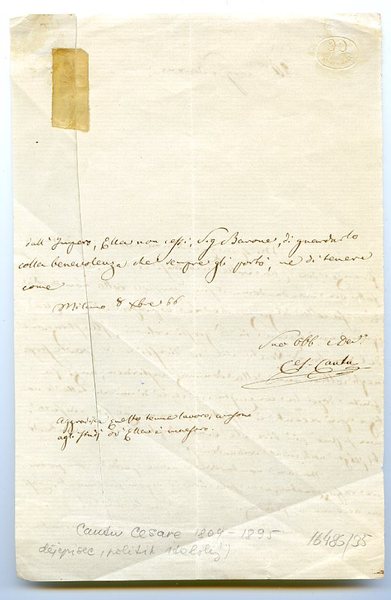 dall' Impero, Ella non cessi, Sig Barone, di guardarlo
colla benevolenza che sempre gli portò, nè di tenere
come
Milano 8 Xbre 66
Suo obb e Dev
Ces. Cantù
questo tenue lavoro,
agli studj di Ella è maestro.
Cantu Cesare 1804 - 1895
dějepisec, politik
16486/35